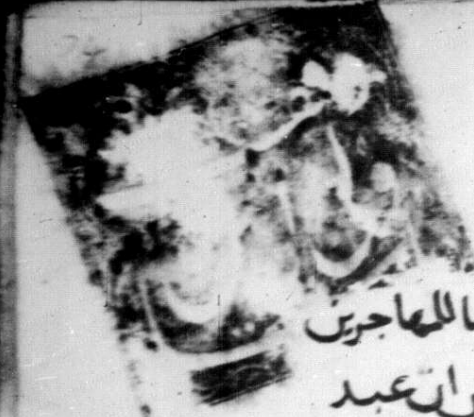 للمهاجرين
ان عبد